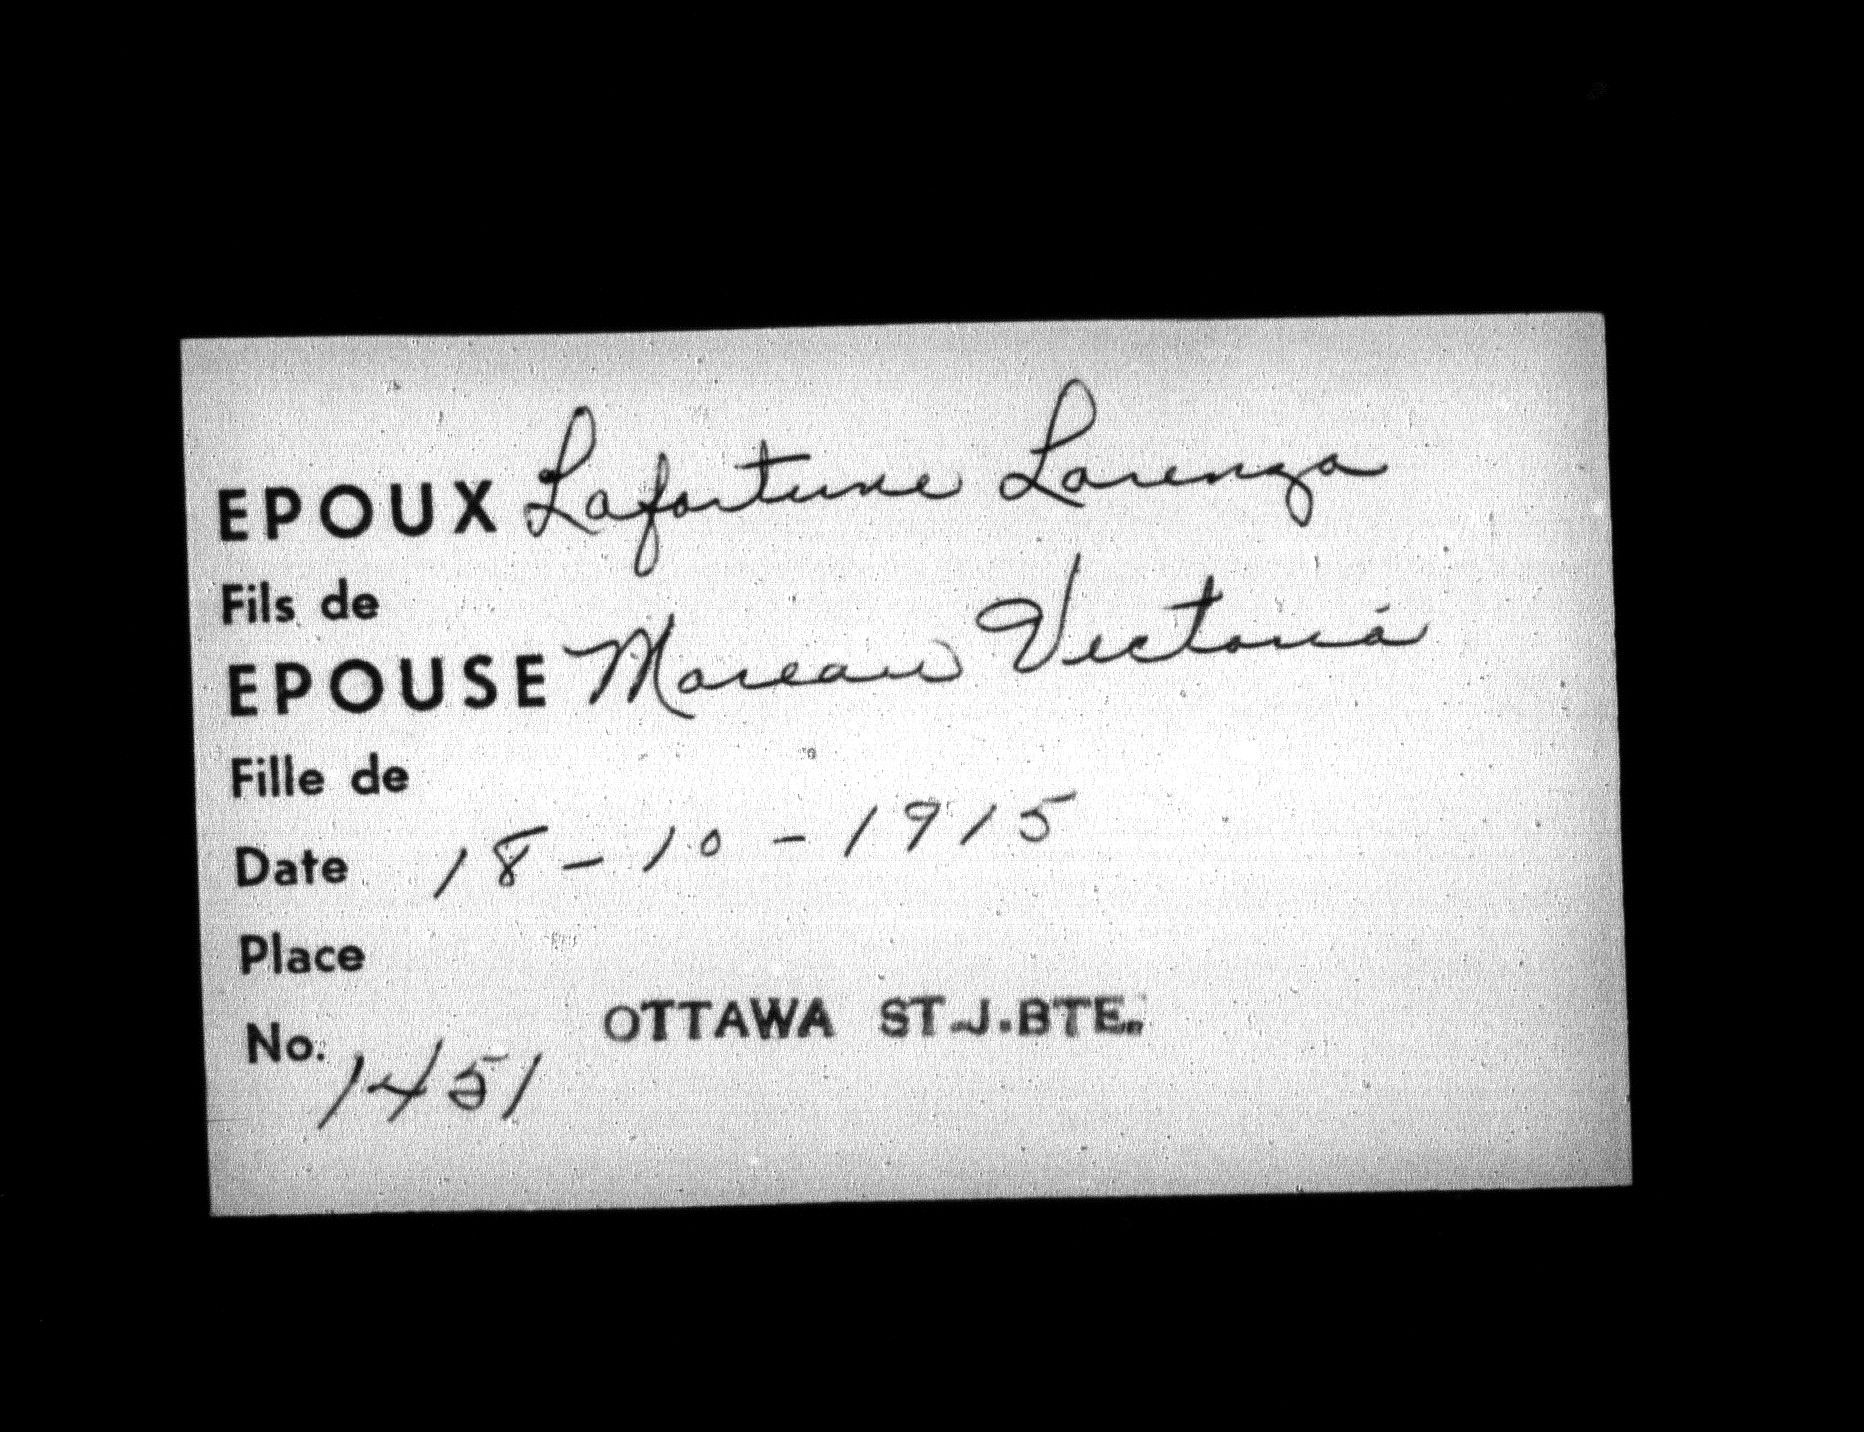 EPOUX Lafortune Lorenza
Fils de
EPOUSE Moreau Victoria
Fille de
Date 18-10-1915
Place
OTTAWA ST.J.BTE.
No. 1451